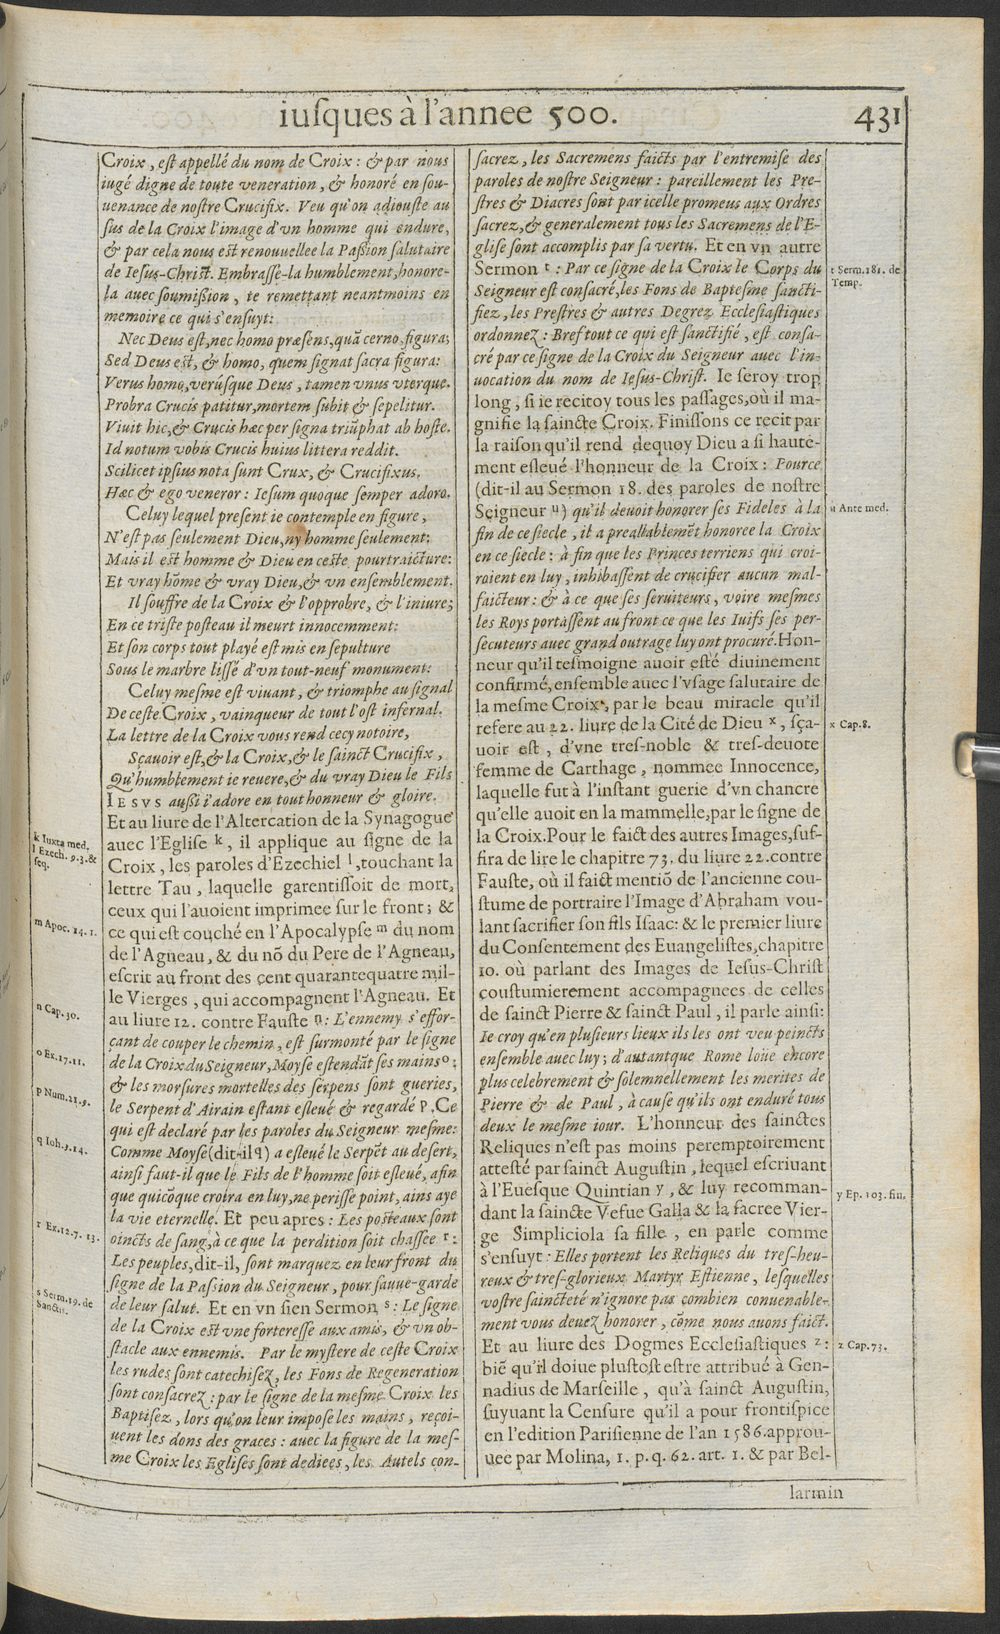 iuſques à l'annee 500.
431
Croix, eſt appellé du nom de Croix: & par nous
iugé digne de toute veneration, & honoré en ſou-
uenance de noſtre Crucifix. Veu qu'on adiouſte au
ſus de la Croix l'image d'vn homme qui endure,
& par cela nous eſt renouuellee la Paſſion ſalutaire
de Ieſus-Chriſt. Embraſſe-la humblement, honore-
la auec ſoumiſſion, te remettant neantmoins en
memoire ce qui s'enſuyt:
Nec Deus eſt, nec homo præſens, quā cerno, figura;
Sed Deus eſt, & homo, quem ſignat ſacra figura:
Verus homo, verúſque Deus, tamen vnus vterque.
Probra Crucis patitur, mortem ſubit & ſepelitur.
Viuit hic, & Crucis hæc per ſigna triūphat ab hoſte.
Id notum vobis Crucis huius littera reddit.
Scilicet ipſius nota ſunt Crux, & Crucifixus.
Hæc & ego veneror: Ieſum quoque ſemper adoro.
Celuy lequel preſent ie contemple en figure,
N'eſt pas ſeulement Dieu, ny homme ſeulement;
Mais il eſt homme & Dieu en ceſte pourtraicture:
Et vray hōme & vray Dieu, & vn enſemblement.
Il ſouffre de la Croix & l'opprobre, & l'iniure;
En ce triſte poſteau il meurt innocemment:
Et ſon corps tout playé eſt mis en ſepulture
Sous le marbre liſſé d'vn tout-neuf monument:
Celuy meſme eſt viuant, & triomphe au ſignal
De ceſte Croix, vainqueur de tout l'oſt infernal.
La lettre de la Croix vous rend cecy notoire,
Sçauoir eſt, & la Croix, & le ſainct Crucifix,
Qu'humblement ie reuere, & du vray Dieu le Fils
IESVS auſſi i'adore en tout honneur & gloire.
Et au liure de l'Altercation de la Synagogue
auec l'Egliſe k, il applique au ſigne de la
Croix, les paroles d'Ezechiel l, touchant la
lettre Tau, laquelle garentiſſoit de mort,
ceux qui l'auoient imprimee ſur le front; &
ce qui eſt couché en l'Apocalypſe m du nom
de l'Agneau, & du nō du Pere de l'Agneau,
eſcrit au front des cent quarantequatre mil-
le Vierges, qui accompagnent l'Agneau. Et
au liure 12. contre Fauſte n: L'ennemy s'effor-
çant de couper le chemin, eſt ſurmonté par le ſigne
de la Croix du Seigneur, Moyſe eſtendāt ſes mains o;
& les morſures mortelles des ſerpens ſont gueries,
le Serpent d'Airain eſtant eſleué & regardé p. Ce
qui eſt declaré par les paroles du Seigneur meſme:
Comme Moyſe (dit-il q) a eſleué le Serpēt au deſert,
ainſi faut-il que le Fils de l'homme ſoit eſleué, afin
que quicōque croira en luy, ne periſſe point, ains aye
la vie eternelle. Et peu apres: Les poſteaux ſont
oincts de ſang, à ce que la perdition ſoit chaſſee r:
Les peuples, dit-il, ſont marquez en leur front du
ſigne de la Paſsion du Seigneur, pour ſauue-garde
de leur ſalut. Et en vn ſien Sermon s: Le ſigne
de la Croix eſt vne fortereſſe aux amis, & vn ob-
ſtacle aux ennemis. Par le myſtere de ceſte Croix
les rudes ſont catechiſez, les Fons de Regeneration
ſont conſacrez: par le ſigne de la meſme Croix les
Baptiſez, lors qu'on leur impoſe les mains, reçoi-
uent les dons des graces: auec la figure de la meſ-
me Croix les Egliſes ſont dediees, les Autels con-
k Iuxta med.
l Ezech. 9.3.&
ſeq.
m Apoc. 14. 1.
n Cap. 30.
o Ex. 17. 11.
p Num. 21. 9.
q Ioh. 3. 14.
r Ex. 12. 7. 13.
s Serm. 19. de
Sanctis.
ſacrez, les Sacremens faicts par l'entremiſe des
paroles de noſtre Seigneur: pareillement les Pre-
ſtres & Diacres ſont par icelle promeus aux Ordres
ſacrez, & generalement tous les Sacremens de l'E-
gliſe ſont accomplis par ſa vertu. Et en vn autre
Sermon t: Par ce ſigne de la Croix le Corps du
Seigneur eſt conſacré, les Fons de Bapteſme ſancti-
fiez, les Preſtres & autres Degrez Eccleſiaſtiques
ordonnez: Bref tout ce qui eſt ſanctifié, eſt conſa-
cré par ce ſigne de la Croix du Seigneur auec l'in-
uocation du nom de Ieſus-Chriſt. Ie ſeroy trop
long, ſi ie recitoy tous les paſſages, où il ma-
gnifie la ſaincte Croix. Finiſſons ce recit par
la raiſon qu'il rend dequoy Dieu a ſi haute-
ment eſleué l'honneur de la Croix: Pource
(dit-il au Sermon 18. des paroles de noſtre
Seigneur u) qu'il deuoit honorer ſes Fideles à la
fin de ce ſiecle, il a preallablemēt honoree la Croix
en ce ſiecle: à fin que les Princes terriens qui croi-
roient en luy, inhibaſſent de crucifier aucun mal-
faicteur: & à ce que ſes ſeruiteurs, voire meſmes
les Roys portaſſent au front ce que les Iuifs ſes per-
ſecuteurs auec grand outrage luy ont procuré. Hon-
neur qu'il teſmoigne auoir eſté diuinement
confirmé, enſemble auec l'vſage ſalutaire de
la meſme Croix, par le beau miracle qu'il
refere au 22. liure de la Cité de Dieu x, ſça-
uoir eſt, d'vne tres-noble & treſ-deuote
femme de Carthage, nommee Innocence,
laquelle fut à l'inſtant guerie d'vn chancre
qu'elle auoit en la mammelle, par le ſigne de
la Croix. Pour le faict des autres Images, ſuf-
fira de lire le chapitre 73. du liure 22. contre
Fauſte, où il faict mentiō de l'ancienne cou-
ſtume de portraire l'Image d'Abraham vou-
lant ſacrifier ſon fils Iſaac: & le premier liure
du Conſentement des Euangeliſtes, chapitre
10. où parlant des Images de Ieſus-Chriſt
couſtumierement accompagnees de celles
de ſainct Pierre & ſainct Paul, il parle ainſi:
Ie croy qu'en pluſieurs lieux ils les ont veu peincts
enſemble auec luy; d'autantque Rome loüe encore
plus celebrement & ſolemnellement les merites de
Pierre & de Paul, à cauſe qu'ils ont enduré tous
deux le meſme iour. L'honneur des ſainctes
Reliques n'eſt pas moins peremptoirement
atteſté par ſainct Auguſtin, lequel eſcriuant
à l'Eueſque Quintian y, & luy recomman-
dant la ſaincte Vefue Galla & la ſacree Vier-
ge Simpliciola ſa fille, en parle comme
s'enſuyt: Elles portent les Reliques du treſ-heu-
reux & treſ-glorieux Martyr Eſtienne, leſquelles
voſtre ſaincteté n'ignore pas combien conuenable-
ment vous deuez honorer, cōme nous auons faict.
Et au liure des Dogmes Eccleſiaſtiques z:
biē qu'il doiue pluſtoſt eſtre attribué à Gen-
nadius de Marſeille, qu'à ſainct Auguſtin,
ſuyuant la Cenſure qu'il a pour frontiſpice
en l'edition Pariſienne de l'an 1586. approu-
uee par Molina, 1. p. q. 62. art. 1. & par Bel-
larmin
t Serm. 181. de
Temp.
u Ante med.
x Cap. 8.
y Ep. 103. fin.
z Cap. 73.